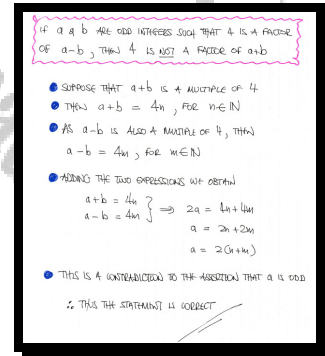 IF a & b ARE ODD INTEGERS SUCH THAT 4 IS A FACTOR
OF a-b, THEN 4 IS NOT A FACTOR OF a+b
SUPPOSE THAT a+b IS A MULTIPLE OF 4
THEN a+b = 4n, FOR n∈ℕ
AS a-b IS ALSO A MULTIPLE OF 4, THEN
a-b = 4m, FOR m∈ℕ
ADDING THE TWO EXPRESSIONS WE OBTAIN
a+b = 4n
a-b = 4m } ⇒ 2a = 4n+4m
a = 2n+2m
a = 2(n+m)
THIS IS A CONTRADICTION TO THE ASSERTION THAT a IS ODD
∴ THUS THE STATEMENT IS CORRECT